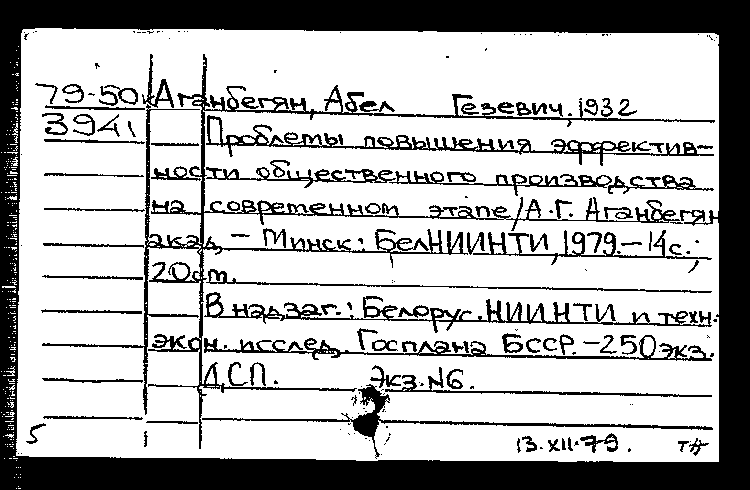 79-50к Аганбегян, Абел Гезевич, 1932
3941 Проблемы повышения эффектив-
ности общественного производства
на современном этапе / А.Г. Аганбегян
акад. – Минск: БелНИИНТИ, 1979. – 14с.;
20см.
В надзаг.: Белорус. НИИНТИ и техн.-
экон. исслед. Госплана БССР. – 250экз.
ДСП. Экз. N6.
5 13.XII.79.